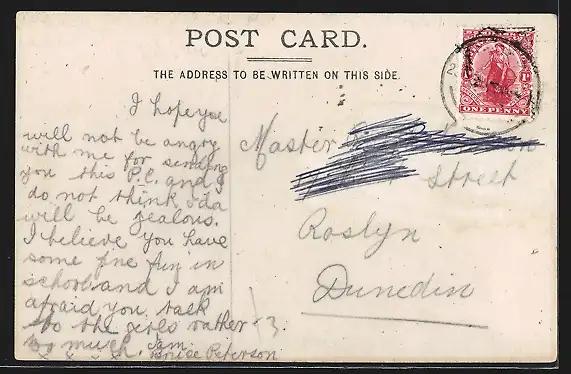 POST CARD.
THE ADDRESS TO BE WRITTEN ON THIS SIDE.
I hope you
will not be angry
with me for sending
you this P.C. and I
do not think Ida
will be jealous.
I believe you have
some fine fun in
school and I am
afraid you talk
to the girls rather
so much.
Peterson
Master
Street
Roslyn
Dunedin
ONE PENNY